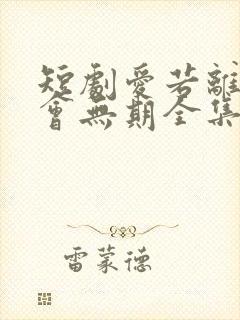 短劇愛若離
會無期全集
雷蒙德